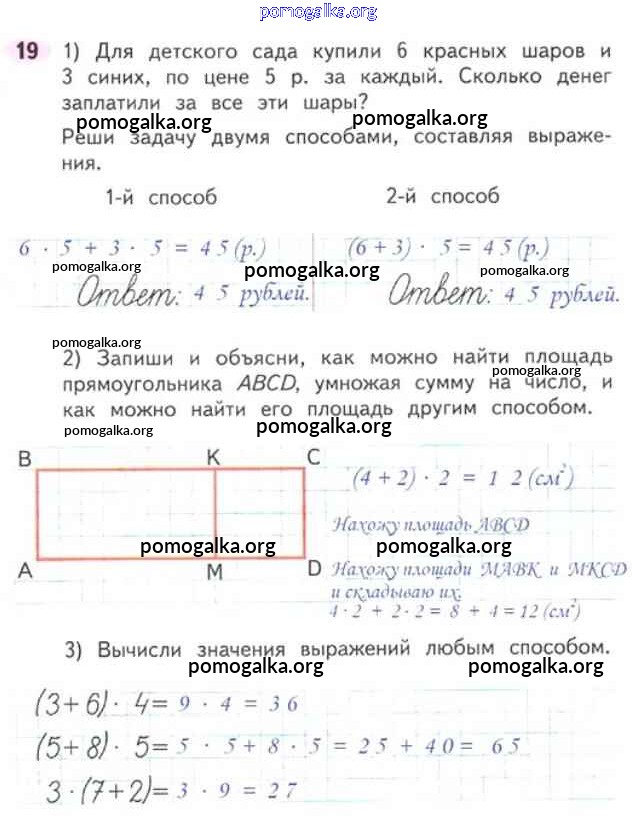 pomogalka.org
19 1) Для детского сада купили 6 красных шаров и
3 синих, по цене 5 р. за каждый. Сколько денег
заплатили за все эти шары?
pomogalka.org pomogalka.org
Реши задачу двумя способами, составляя выраже-
ния.
1-й способ 2-й способ
6 · 5 + 3 · 5 = 4 5 (р.) (6 + 3) · 5 = 4 5 (р.)
pomogalka.org pomogalka.org pomogalka.org
Ответ: 4 5 рублей. Ответ: 4 5 рублей.
pomogalka.org
2) Запиши и объясни, как можно найти площадь
pomogalka.org
прямоугольника ABCD, умножая сумму на число, и
как можно найти его площадь другим способом.
pomogalka.org pomogalka.org
B K C
(4 + 2) · 2 = 1 2 (см²)
Нахожу площадь ABCD
pomogalka.org pomogalka.org
A M D Нахожу площади MABK и MKCD
и складываю их.
4 · 2 + 2 · 2 = 8 + 4 = 12 (см²)
3) Вычисли значения выражений любым способом.
pomogalka.org pomogalka.org
(3+6) · 4 = 9 · 4 = 3 6
(5+8) · 5 = 5 · 5 + 8 · 5 = 2 5 + 4 0 = 6 5
pomogalka.org pomogalka.org
3 · (7+2) = 3 · 9 = 2 7